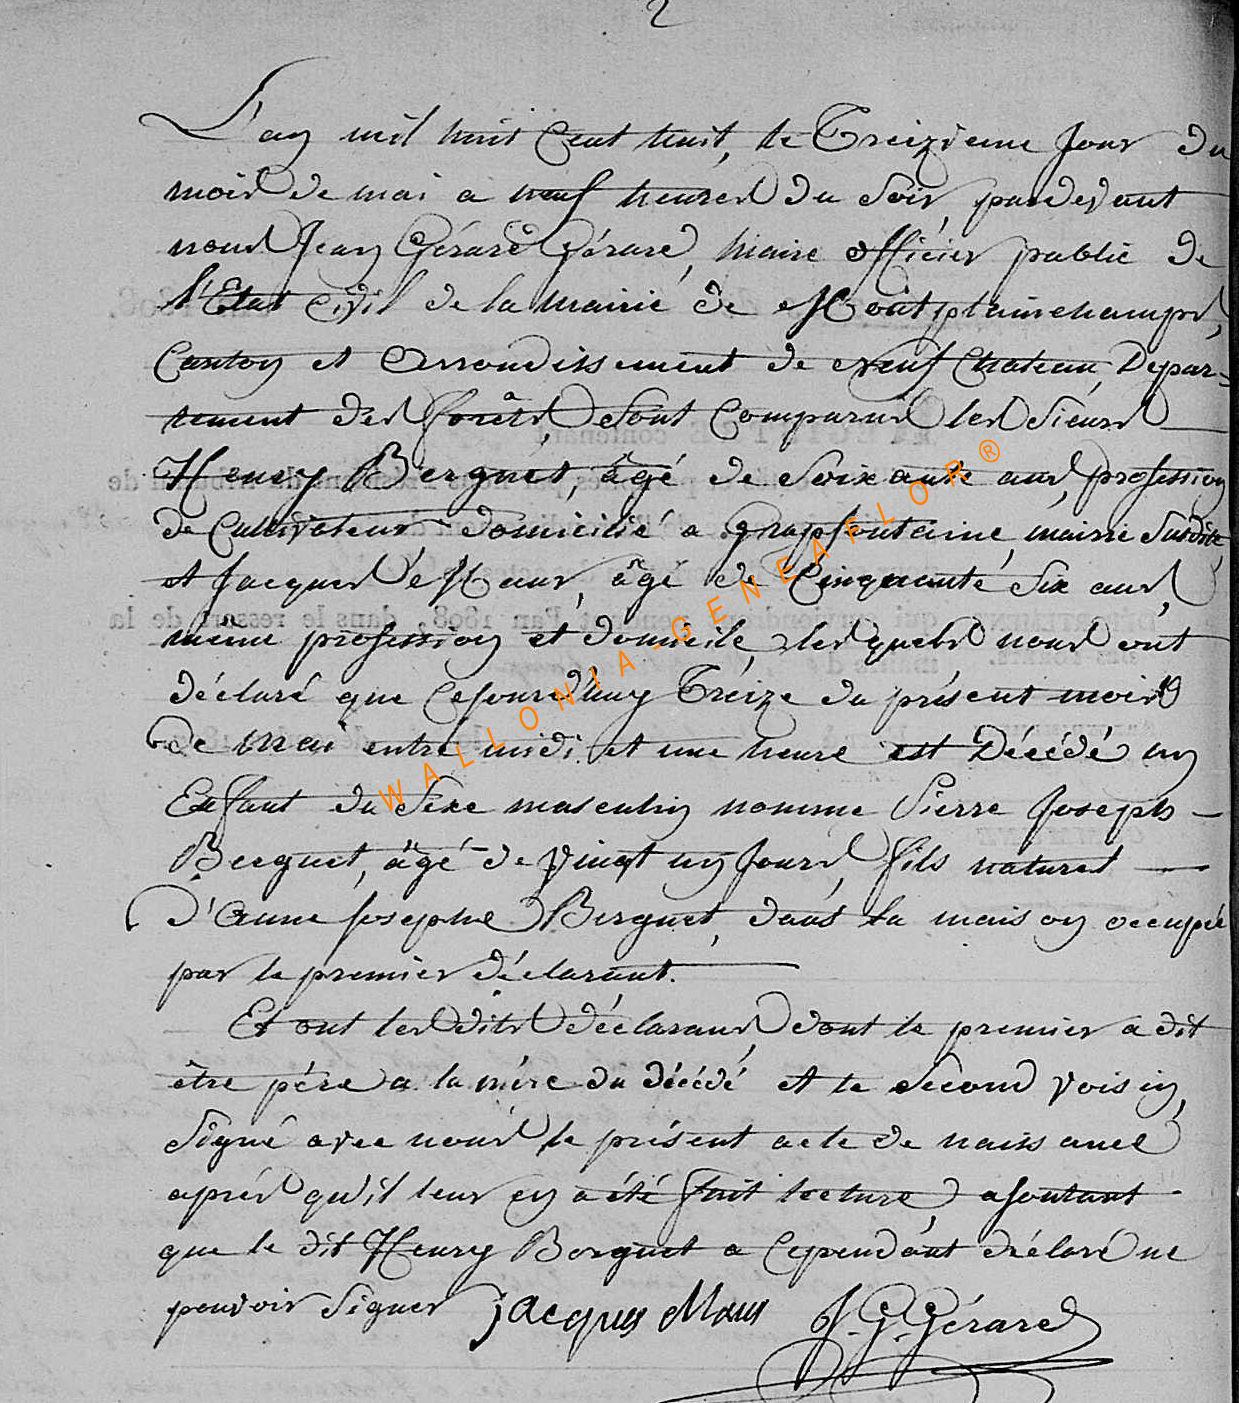 2
L'an mil huit Cent huit, le Treizieme Jour du
mois de mai a neuf heures du Soir, pardevant
nous Jean Gérard Gérard, Maire officier public de
l'Etat Civil de la Mairie de Montplainchamps,
Canton et Arrondissement de Neuf Chateau, Depar-
tement des forêts, Sont Comparus les Sieurs
Henry Bergnet, âgé de Soixante ans, profession
de Cultivateur domicilié a Grapfontaine, mairie Susdite,
et Jacques Maus, âgé de Cinquante Six ans,
même profession et domicile, les quels nous ont
déclaré que Cejourd'huy Treize du présent mois
de mai entre midi et une heure est Décédé un
Enfant du Sexe masculin nomme Pierre Joseph
Bergnet, âgé de vingt un Jours, fils naturel
d'Anne Josephe Bergnet, dans la maison occupée
par le premier déclarant.
Et ont les dits déclarans, dont le premier a dit
être père a la mére du décédé et le Second voisin,
Signé avec nous le présent acte de naissance
après qu'il leur en a été fait lecture, ajoutant
que le dit Henry Borgnet a Cependant déclaré ne
pouvoir Signer Jacques Maus J. G. Gérard
WALLONIA-GENEAFLOR®